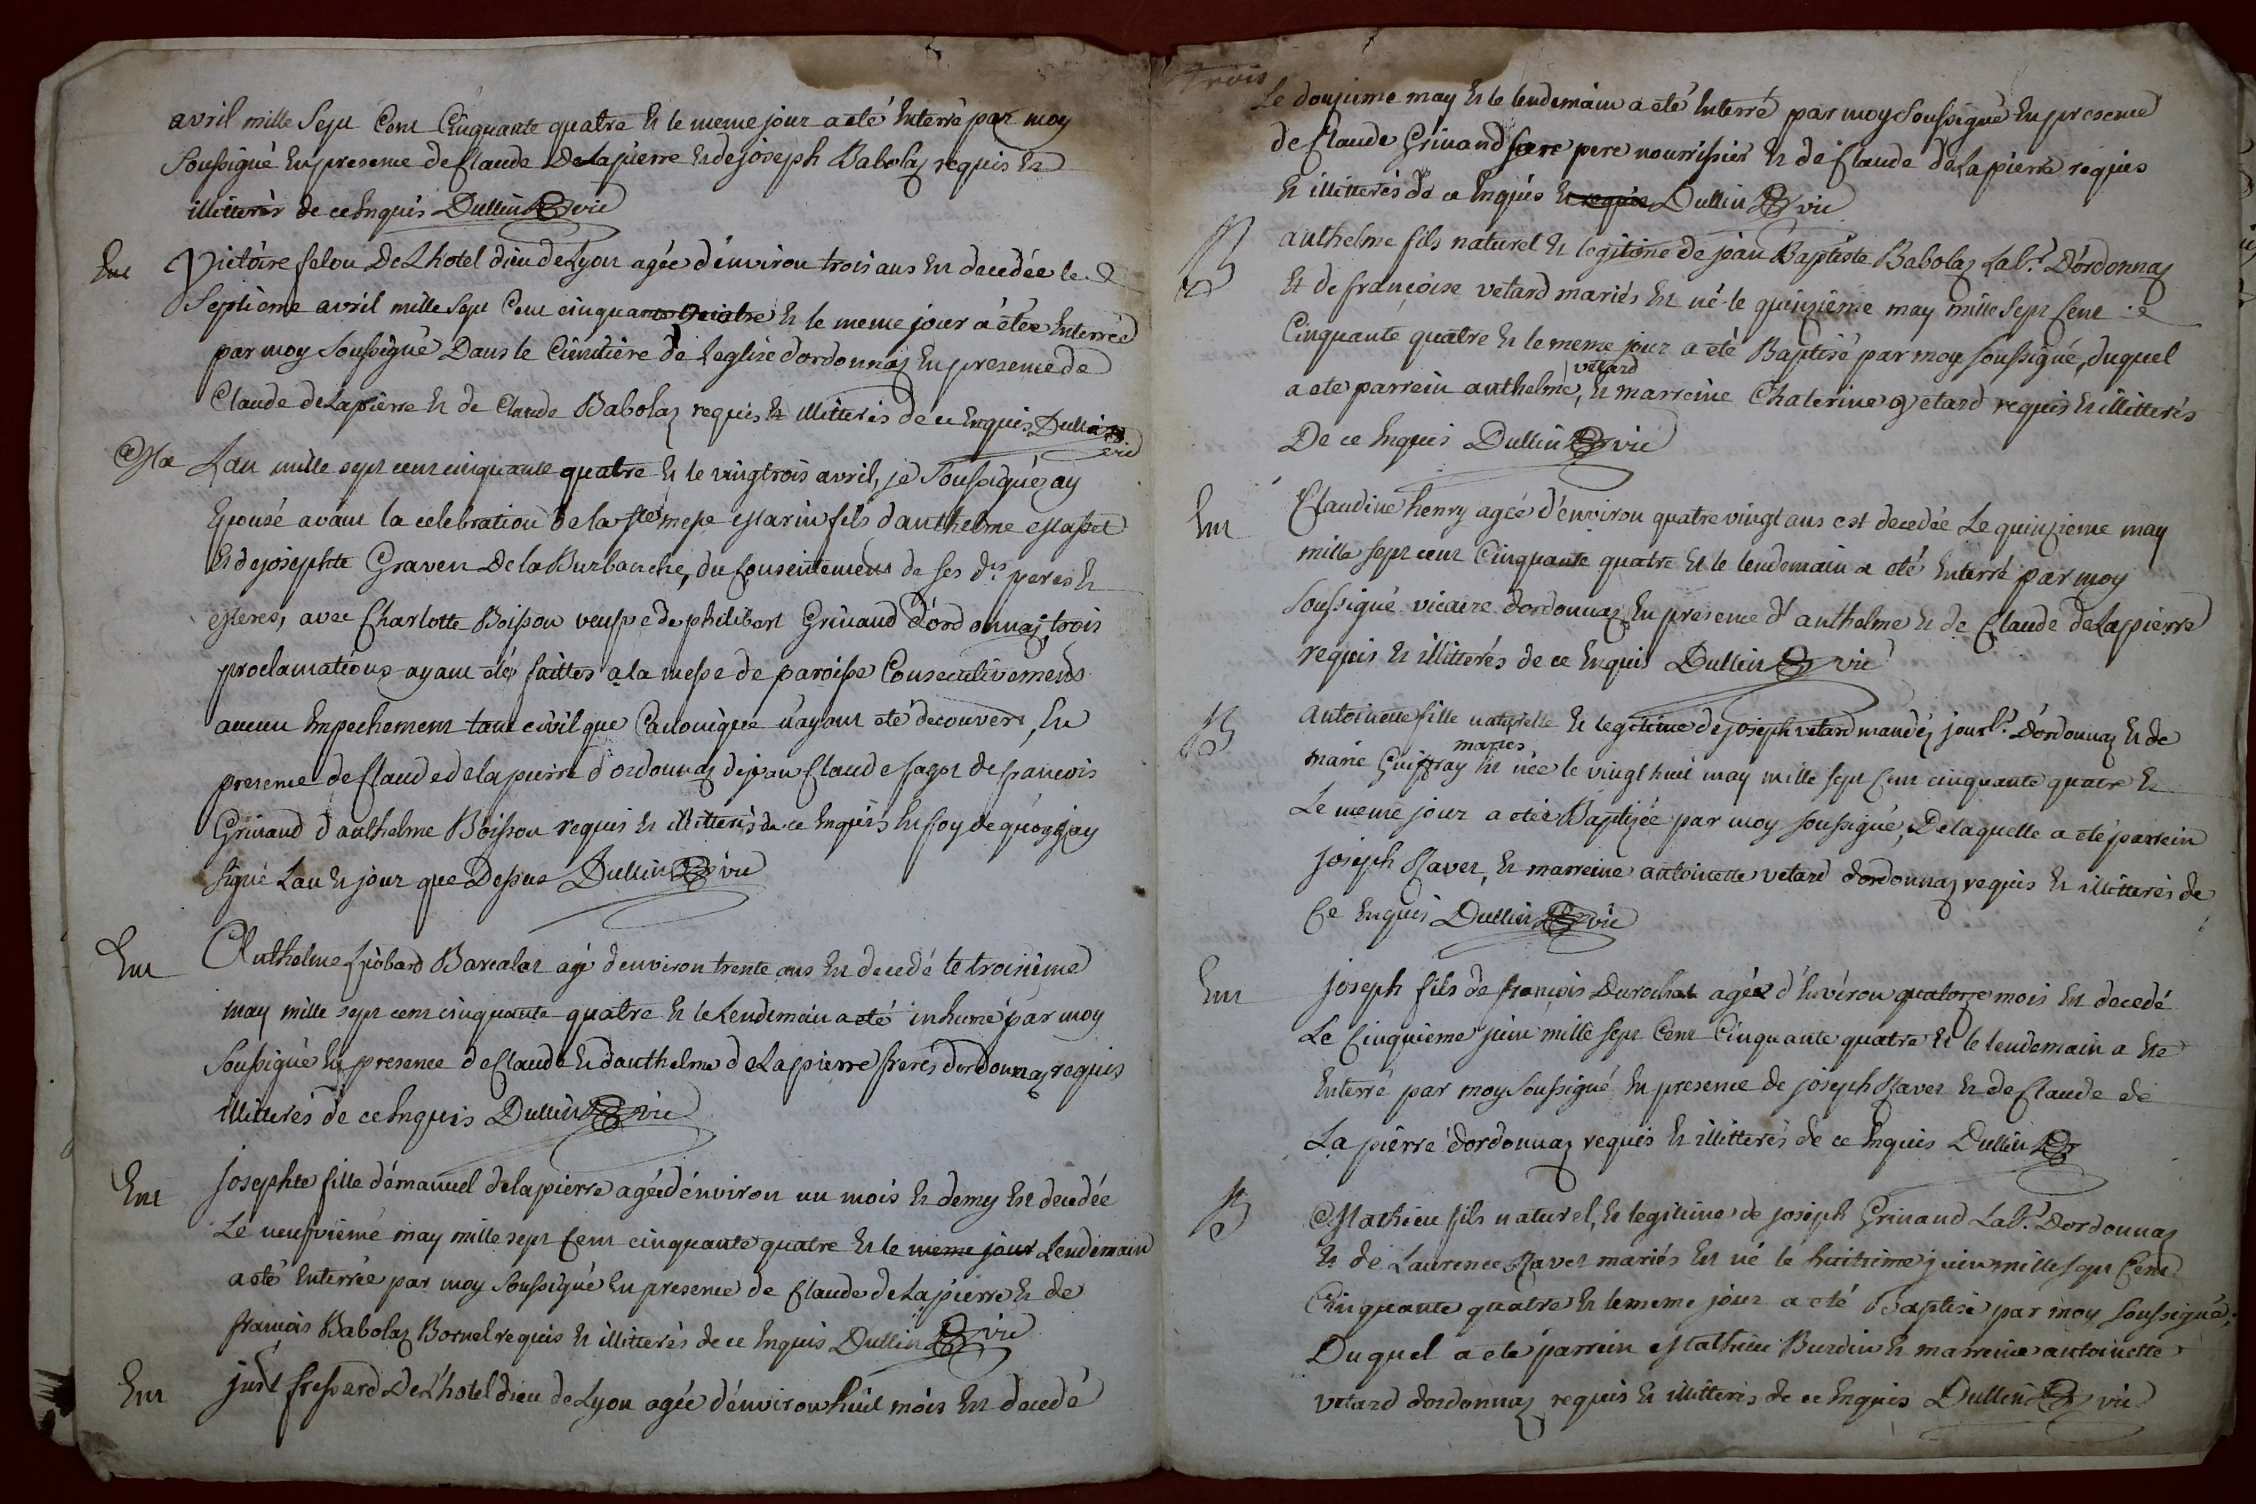 avril mille Sept Cent Cinquante quatre Et le meme jour a eté Enterré par moy
Soussigné En presence de Claude Delapierre Et de joseph Babolaz requis Et
illitterés de ce Enquis Dullin vic
Ent
Victoire felou De L'hotel dieu de Lyon agée d'environ trois ans Est decedée le
Septième avril mille Sept Cent cinquante Quatre Et le meme jour a étée Enterrée
par moy Soussigné Dans le Cimitière de Leglise d'ordonnaz En presence de
Claude deLapierre Et de Claude Babolaz requis Et illitterés de ce Enquis Dullin vic
Ma
Lan mille sept cent cinquante quatre Et le vingtrois avril, je Soussigné, ay
Epousé avant la celebration de la Ste messe Marin fils d'anthelme Masset
Et de josephte Graven De la Burbanche, du Consentement de ses dts peres Et
Meres, avec Charlotte Boisson veufve de philibert Grinand d'ordonnaz, trois
proclamations ayant été faittes a la messe de paroisse Consecutivement
aucun Empechement tant civil que Canonique n'ayant eté decouvert, En
presence de Claude delapierre d'ordonnaz de jean Claude fagot de francois
Grinand d'anthelme Boisson requis Et illitterés de ce Enquis En foy de quoy j'ay
Signé Lan Et jour que Dessus Dullin vic
Ent
Anthelme Liobard Barcalet agé denviron trente ans Est decedé le troisième
may mille sept cent cinquante quatre Et le Lendemain a eté inhumé par moy
Soussigné En presence de Claude Et d'anthelme deLapierre freres d'ordonnaz requis
illiterés de ce Enquis Dullin vic
Ent
josephte fille d'émanuel delapierre agée d'environ un mois Et demy Est decedée
Le neufvième may mille sept Cent cinquante quatre Et le meme jour Lendemain
a eté Enterrée par moy Soussigné En presence de Claude deLapierre Et de
francois Babolaz Bornel requis Et illitterés de ce Enquis Dullin vic
Ent
just fressard De L'hotel dieu de Lyon agée d'environ huit mois Est decedé
trois
Le douzieme may Et le lendemain a eté Enterré par moy Soussigné En presence
de Claude Grinand pere nourrissier Et de Claude deLapierre requis
Et illitterés de ce Enquis Et requis Dullin vic
B
anthelme fils naturel Et legitime de jean Baptiste Babolaz Labr. D'ordonnaz
Et de françoise vetard mariés Est né le quinzième may mille sept Cent
Cinquante quatre Et le meme jour a eté Baptisé par moy Soussigné, duquel
vetard
a ete parrein anthelme, Et marreine Chaterine vetard requis Et illitterés
De ce Enquis Dullin vic
Ent
Claudine henry agée d'environ quatre vingt ans est decedée Le quinzieme may
mille sept cent Cinquante quatre Et le lendemain a eté Enterré par moy
soussigné vicaire d'ordonnaz En presence d'anthelme Et de Claude deLapierre
requis Et illitterés de ce Enquis Dullin vic
B
Antoinette fille naturelle Et legitime de joseph vetard mandéz jourl. D'ordonnaz Et de
mariés
marie Guiffray Est née le vingt huit may mille sept Cent cinquante quatre Et
Le meme jour a etée Baptizée par moy soussigné, De laquelle a eté parrein
joseph Ravet, Et marreine antoinette vetard d'ordonnaz requis Et illitterés de
Ce Enquis Dullin vic
Ent
joseph fils de françois Durochat agée d'Environ quatorze mois Est decedé
Le Cinquieme juin mille sept Cent Cinquante quatre Et le lendemain a ete
Enterré par moy Soussigné En presence de joseph Ravet Et de Claude de
Lapierre d'ordonnaz requis Et illitterés de ce Enquis Dullin
B
Mathieu fils naturel, Et legitime de joseph Grinand Labr. D'ordonnaz
Et de Laurence Ravet mariés Est né le huitieme juin mille sept Cent
Cinquante quatre Et le meme jour a eté Baptisé par moy soussigné,
Duquel a eté parrein Mathieu Burdin Et marreine antoinette
vetard d'ordonnaz requis Et illitterés de ce Enquis Dullin vic